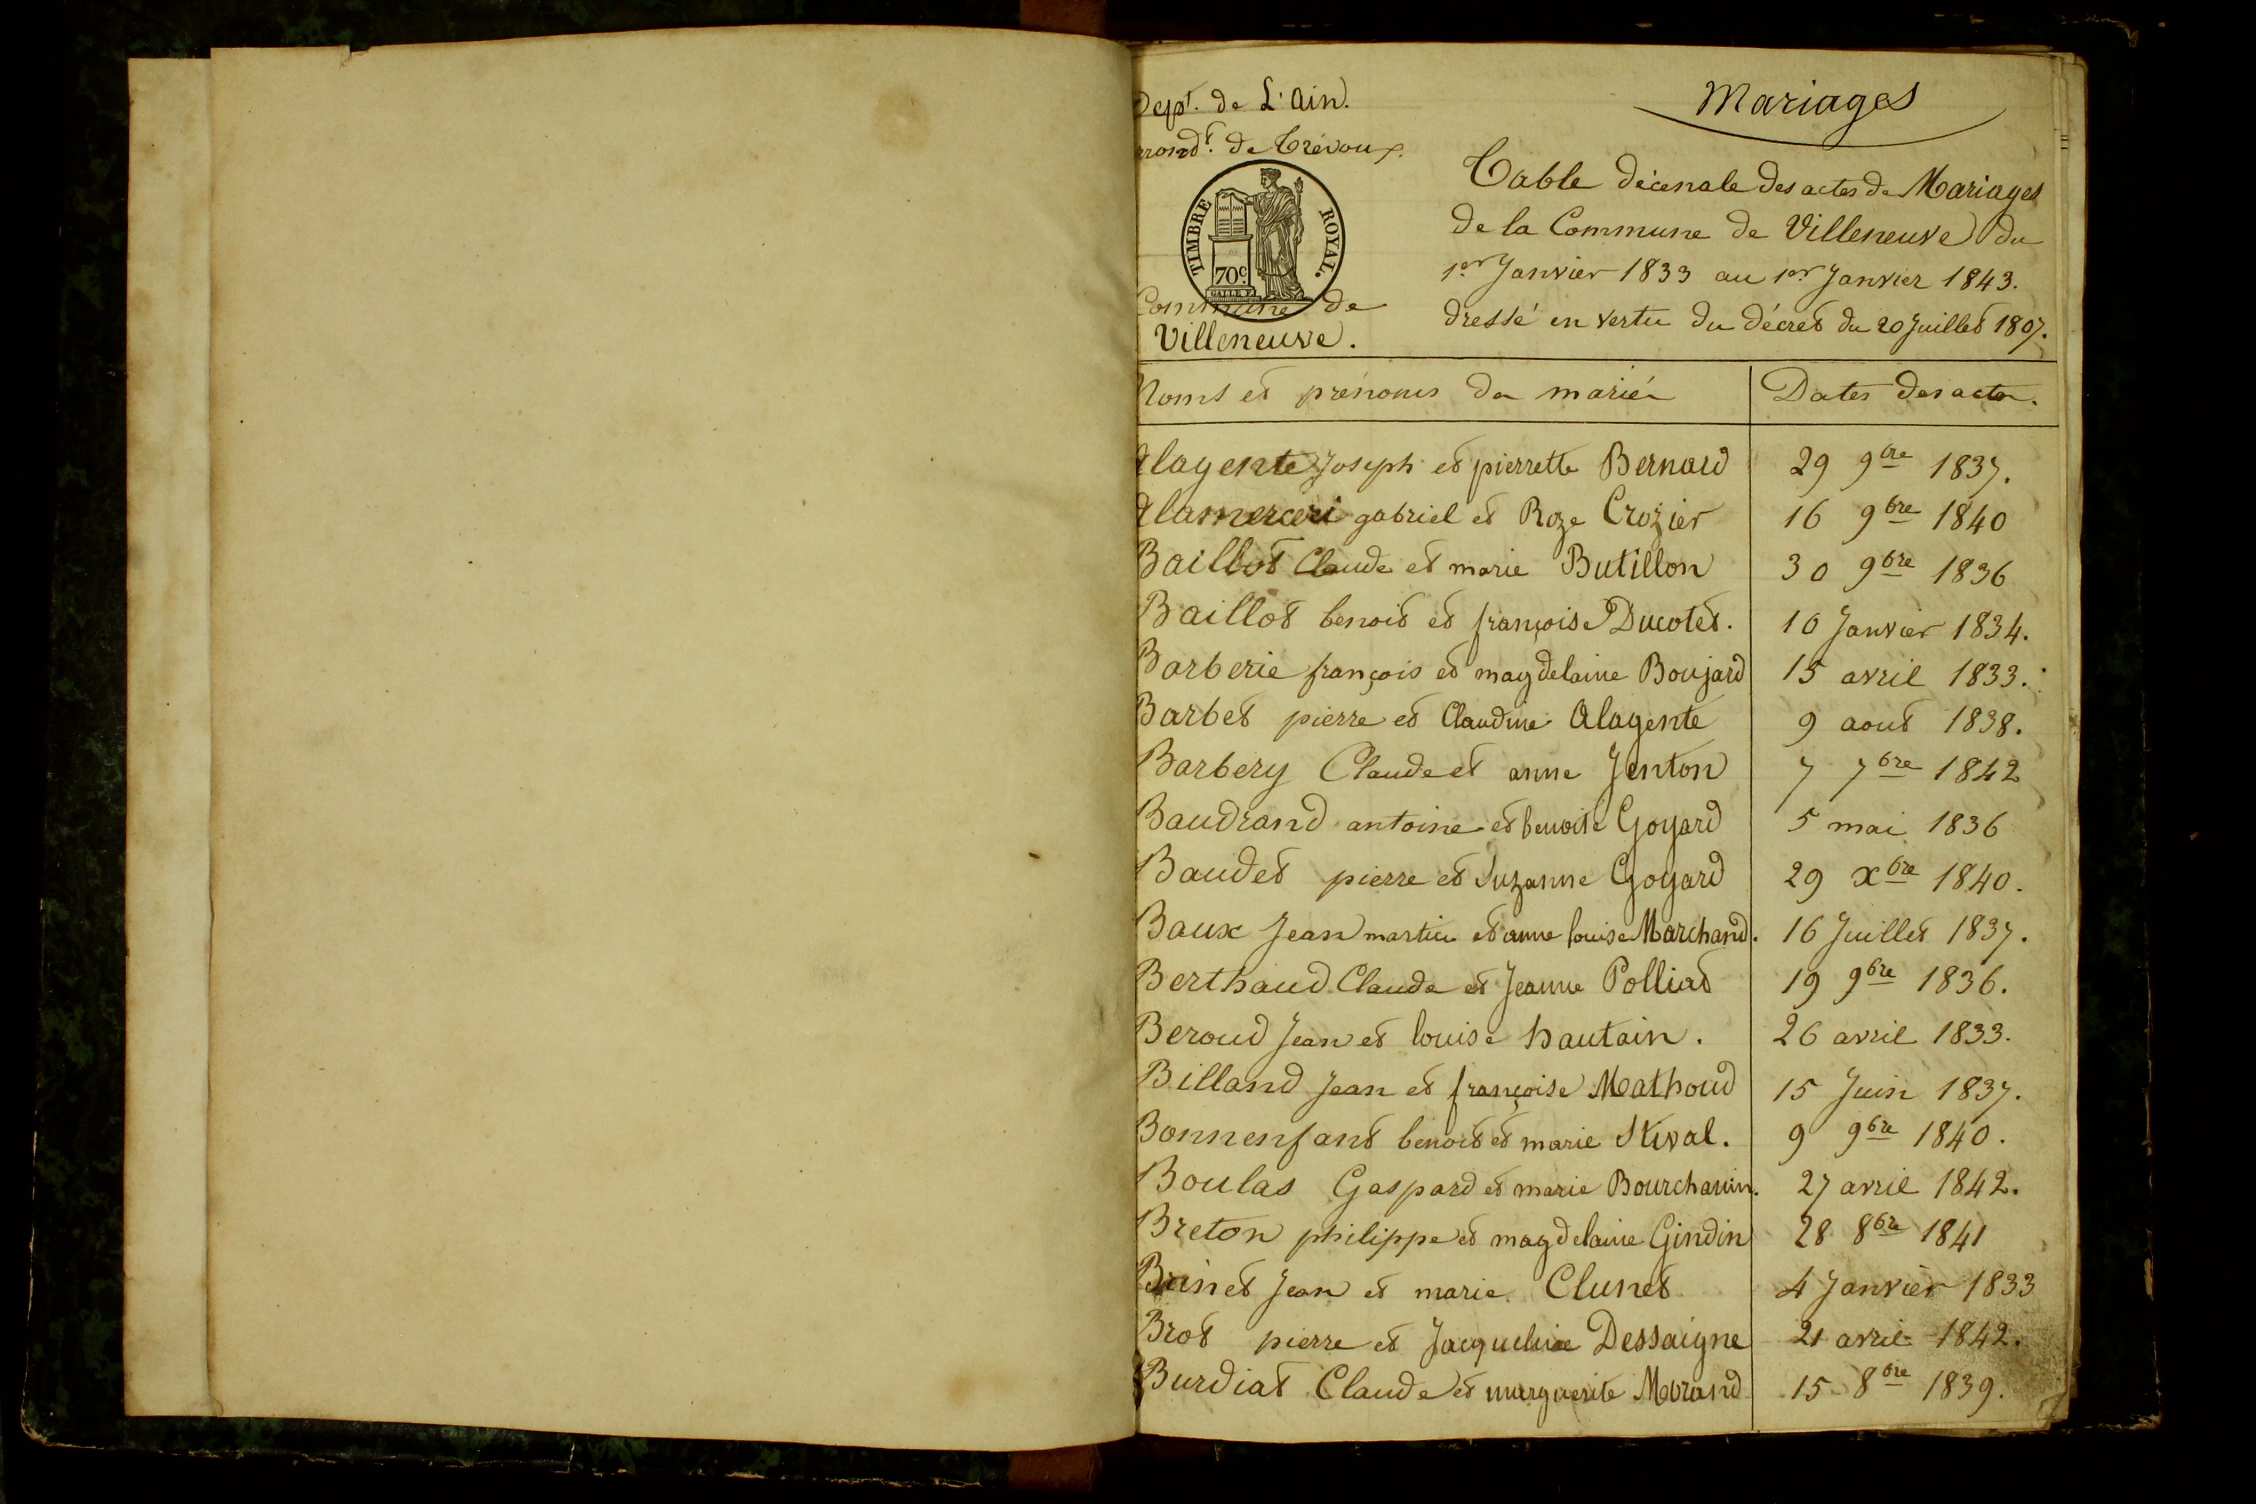 Dept. de L'ain.
rrondt. de Trévoux.
TIMBRE ROYAL.
70c.
Commune de
Villeneuve.
Mariages
Table décenale des actes de Mariages
de la Commune de Villeneuve du
1er Janvier 1833 au 1er Janvier 1843.
dressé en vertu du décret du 20 Juillet 1807.
Noms et prénoms des mariés Dates des actes.
alagente Joseph et pierrette Bernard 29 9bre 1837.
alamerceri gabriel et Roze Crozier 16 9bre 1840
Baillot Claude et marie Butillon 30 9bre 1836
Baillot benoit et françoise Ducotet. 10 Janvier 1834.
Barberie françois et magdelaine Boujard 15 avril 1833.
Barbet pierre et Claudine alagente 9 aout 1838.
Barbery Claude et anne Jenton 7 7bre 1842
Baudrand antoine et benoite Goyard 5 mai 1836
Baudet pierre et Suzanne Goyard 29 xbre 1840.
Baux Jean martin et anne louise Marchand. 16 Juillet 1837.
Berthaud Claude et Jeanne Polliat 19 9bre 1836.
Beroud Jean et louise hautain. 26 avril 1833.
Billand Jean et françoise Mathoud 15 Juin 1837.
Bonnenfant benoit et marie Stival. 9 9bre 1840.
Boulas Gaspard et marie Bourchanin. 27 avril 1842.
Breton philippe et magdelaine Gindin 28 8bre 1841
Brinet Jean et marie Clunet 4 Janvier 1833
Brot pierre et Jacqueline Dessaigne 21 avril 1842.
Burdiat Claude et marguerite Morand 15 8bre 1839.